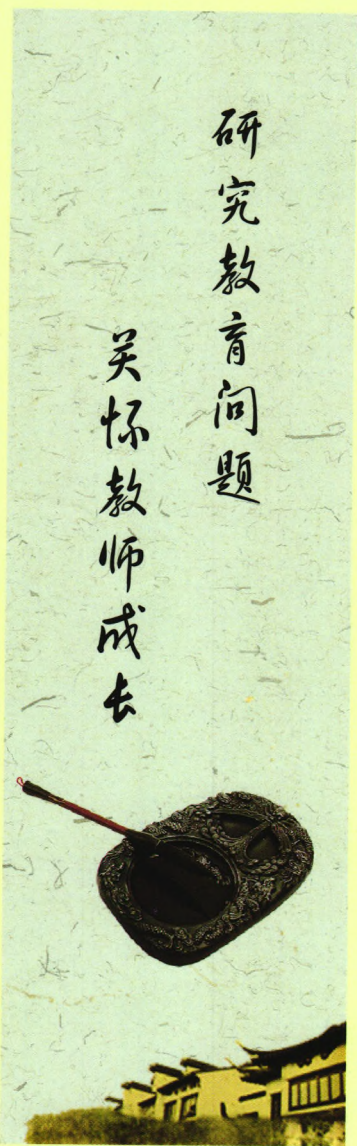 研究教育问题
关怀教师成长